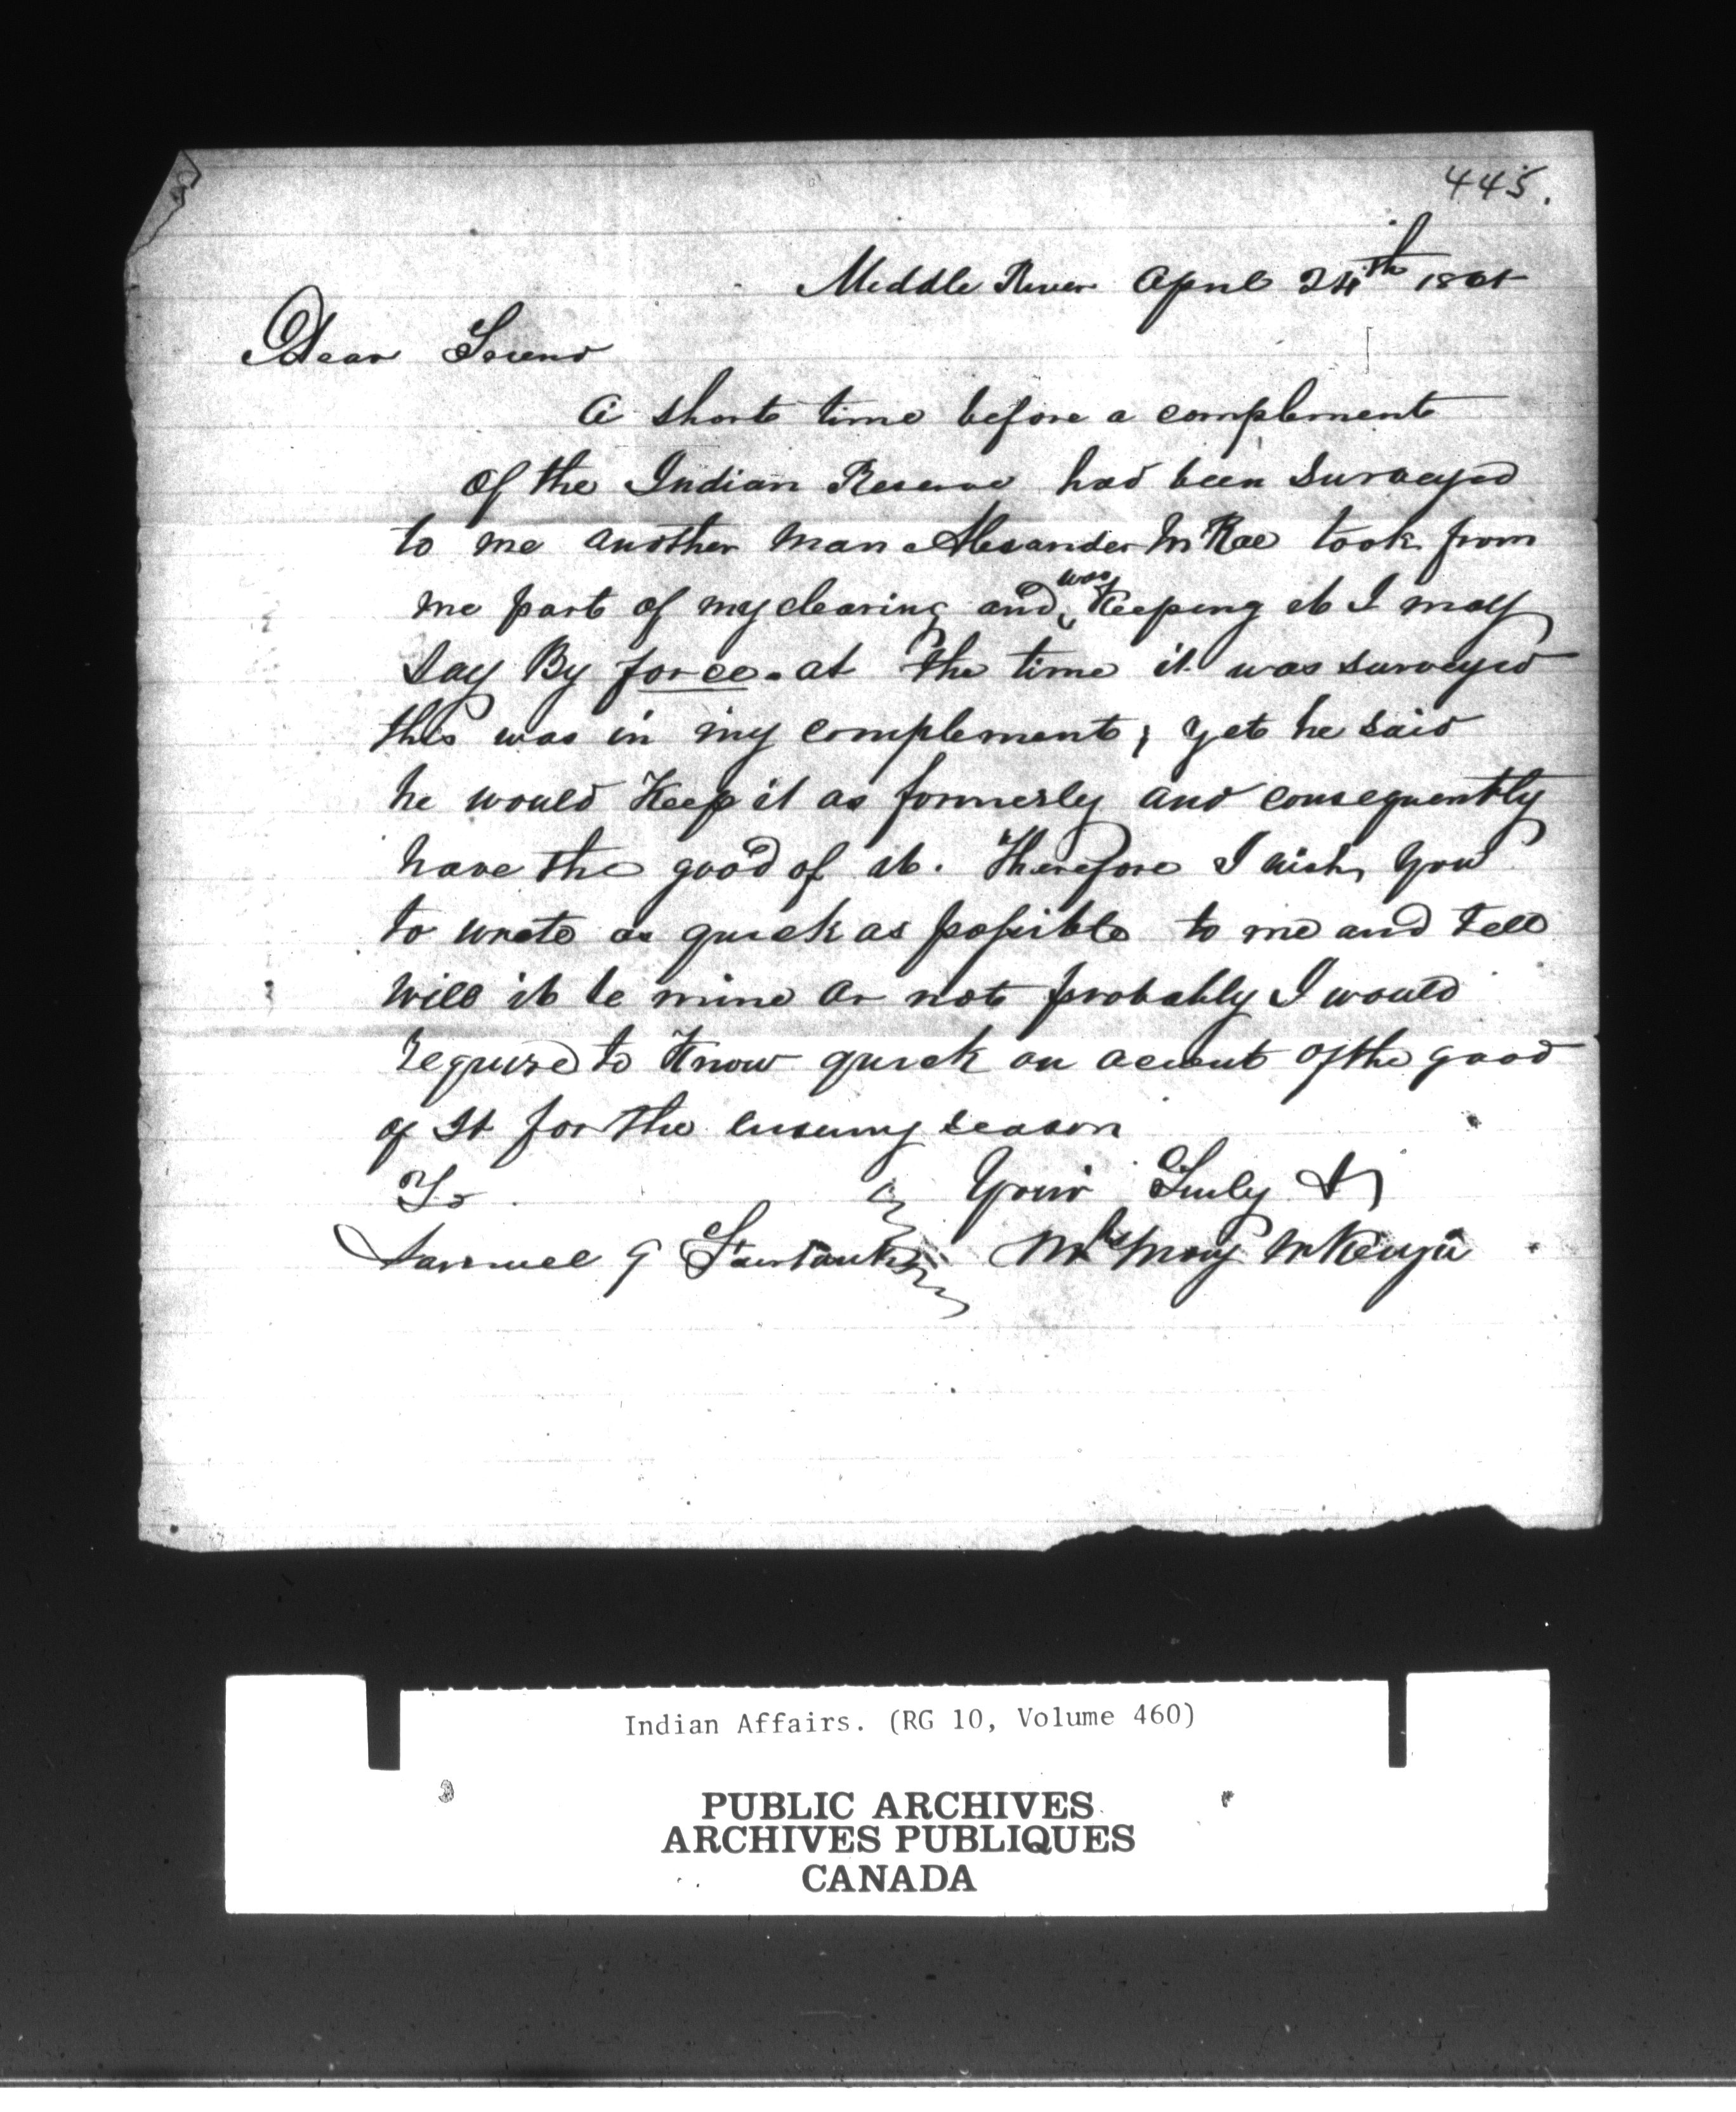 445.
Middle River April 24th 1865
Dear Friend
A short time before a complement
of the Indian Reserve had been surveyed
to me another man Alexander McRae took from
me part of my clearing and was Keeping it I may
say By force. at the time it was surveyed
this was in my complement, yet he said
he would Keep it as formerly and consequently
have the good of it. Therefore I wish you
to write as quick as possible to me and tell
will it be mine or not probably I would
require to Know quick on account of the good
of It for the ensuing season
To Your Truly &
Samuel G Fairbanks Mrs Mary McKenzie
Indian Affairs. (RG 10, Volume 460)
PUBLIC ARCHIVES
ARCHIVES PUBLIQUES
CANADA